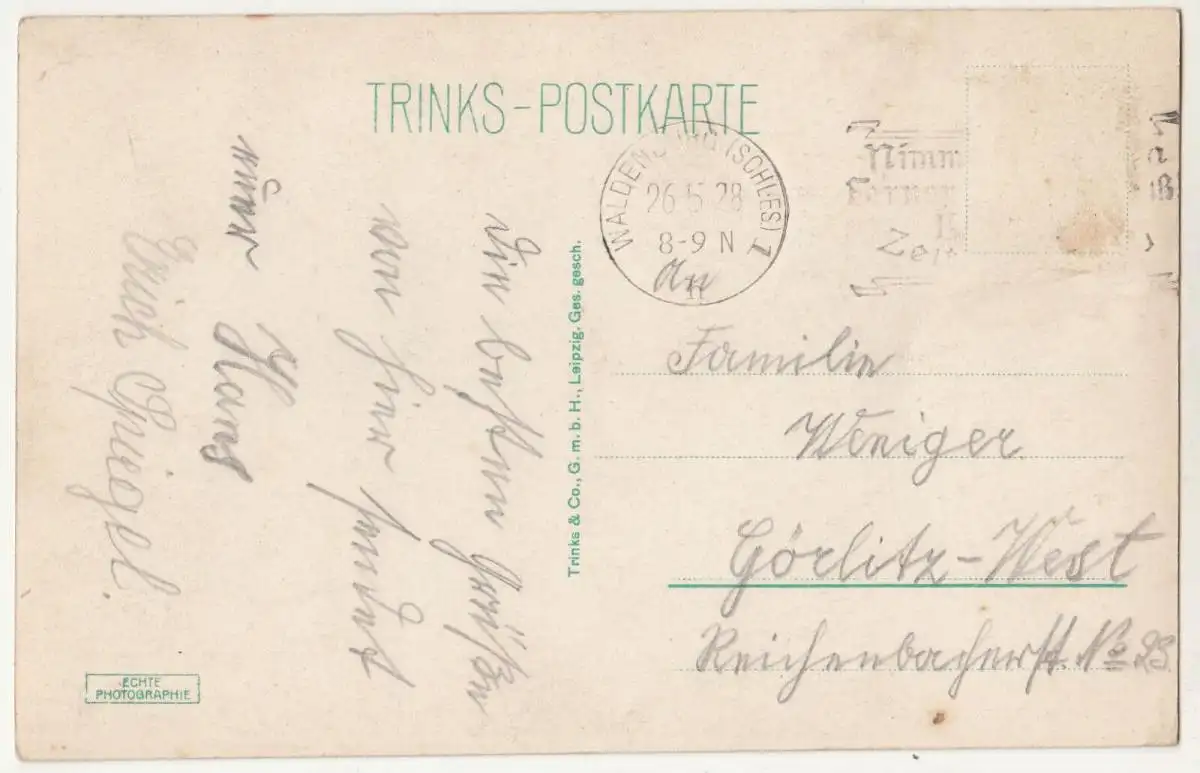 TRINKS-POSTKARTE
WALDENBURG (SCHLES) 1
26 5 28
8-9 N
Nimm
An
Familie
Weniger
Görlitz-West
Reichenbacherst. No 23
Trinks & Co., G. m. b. H., Leipzig. Ges. gesch.
Die besten Grüße
von hier sendet
euer Hans
Erich Spiegel.
ECHTE
PHOTOGRAPHIE